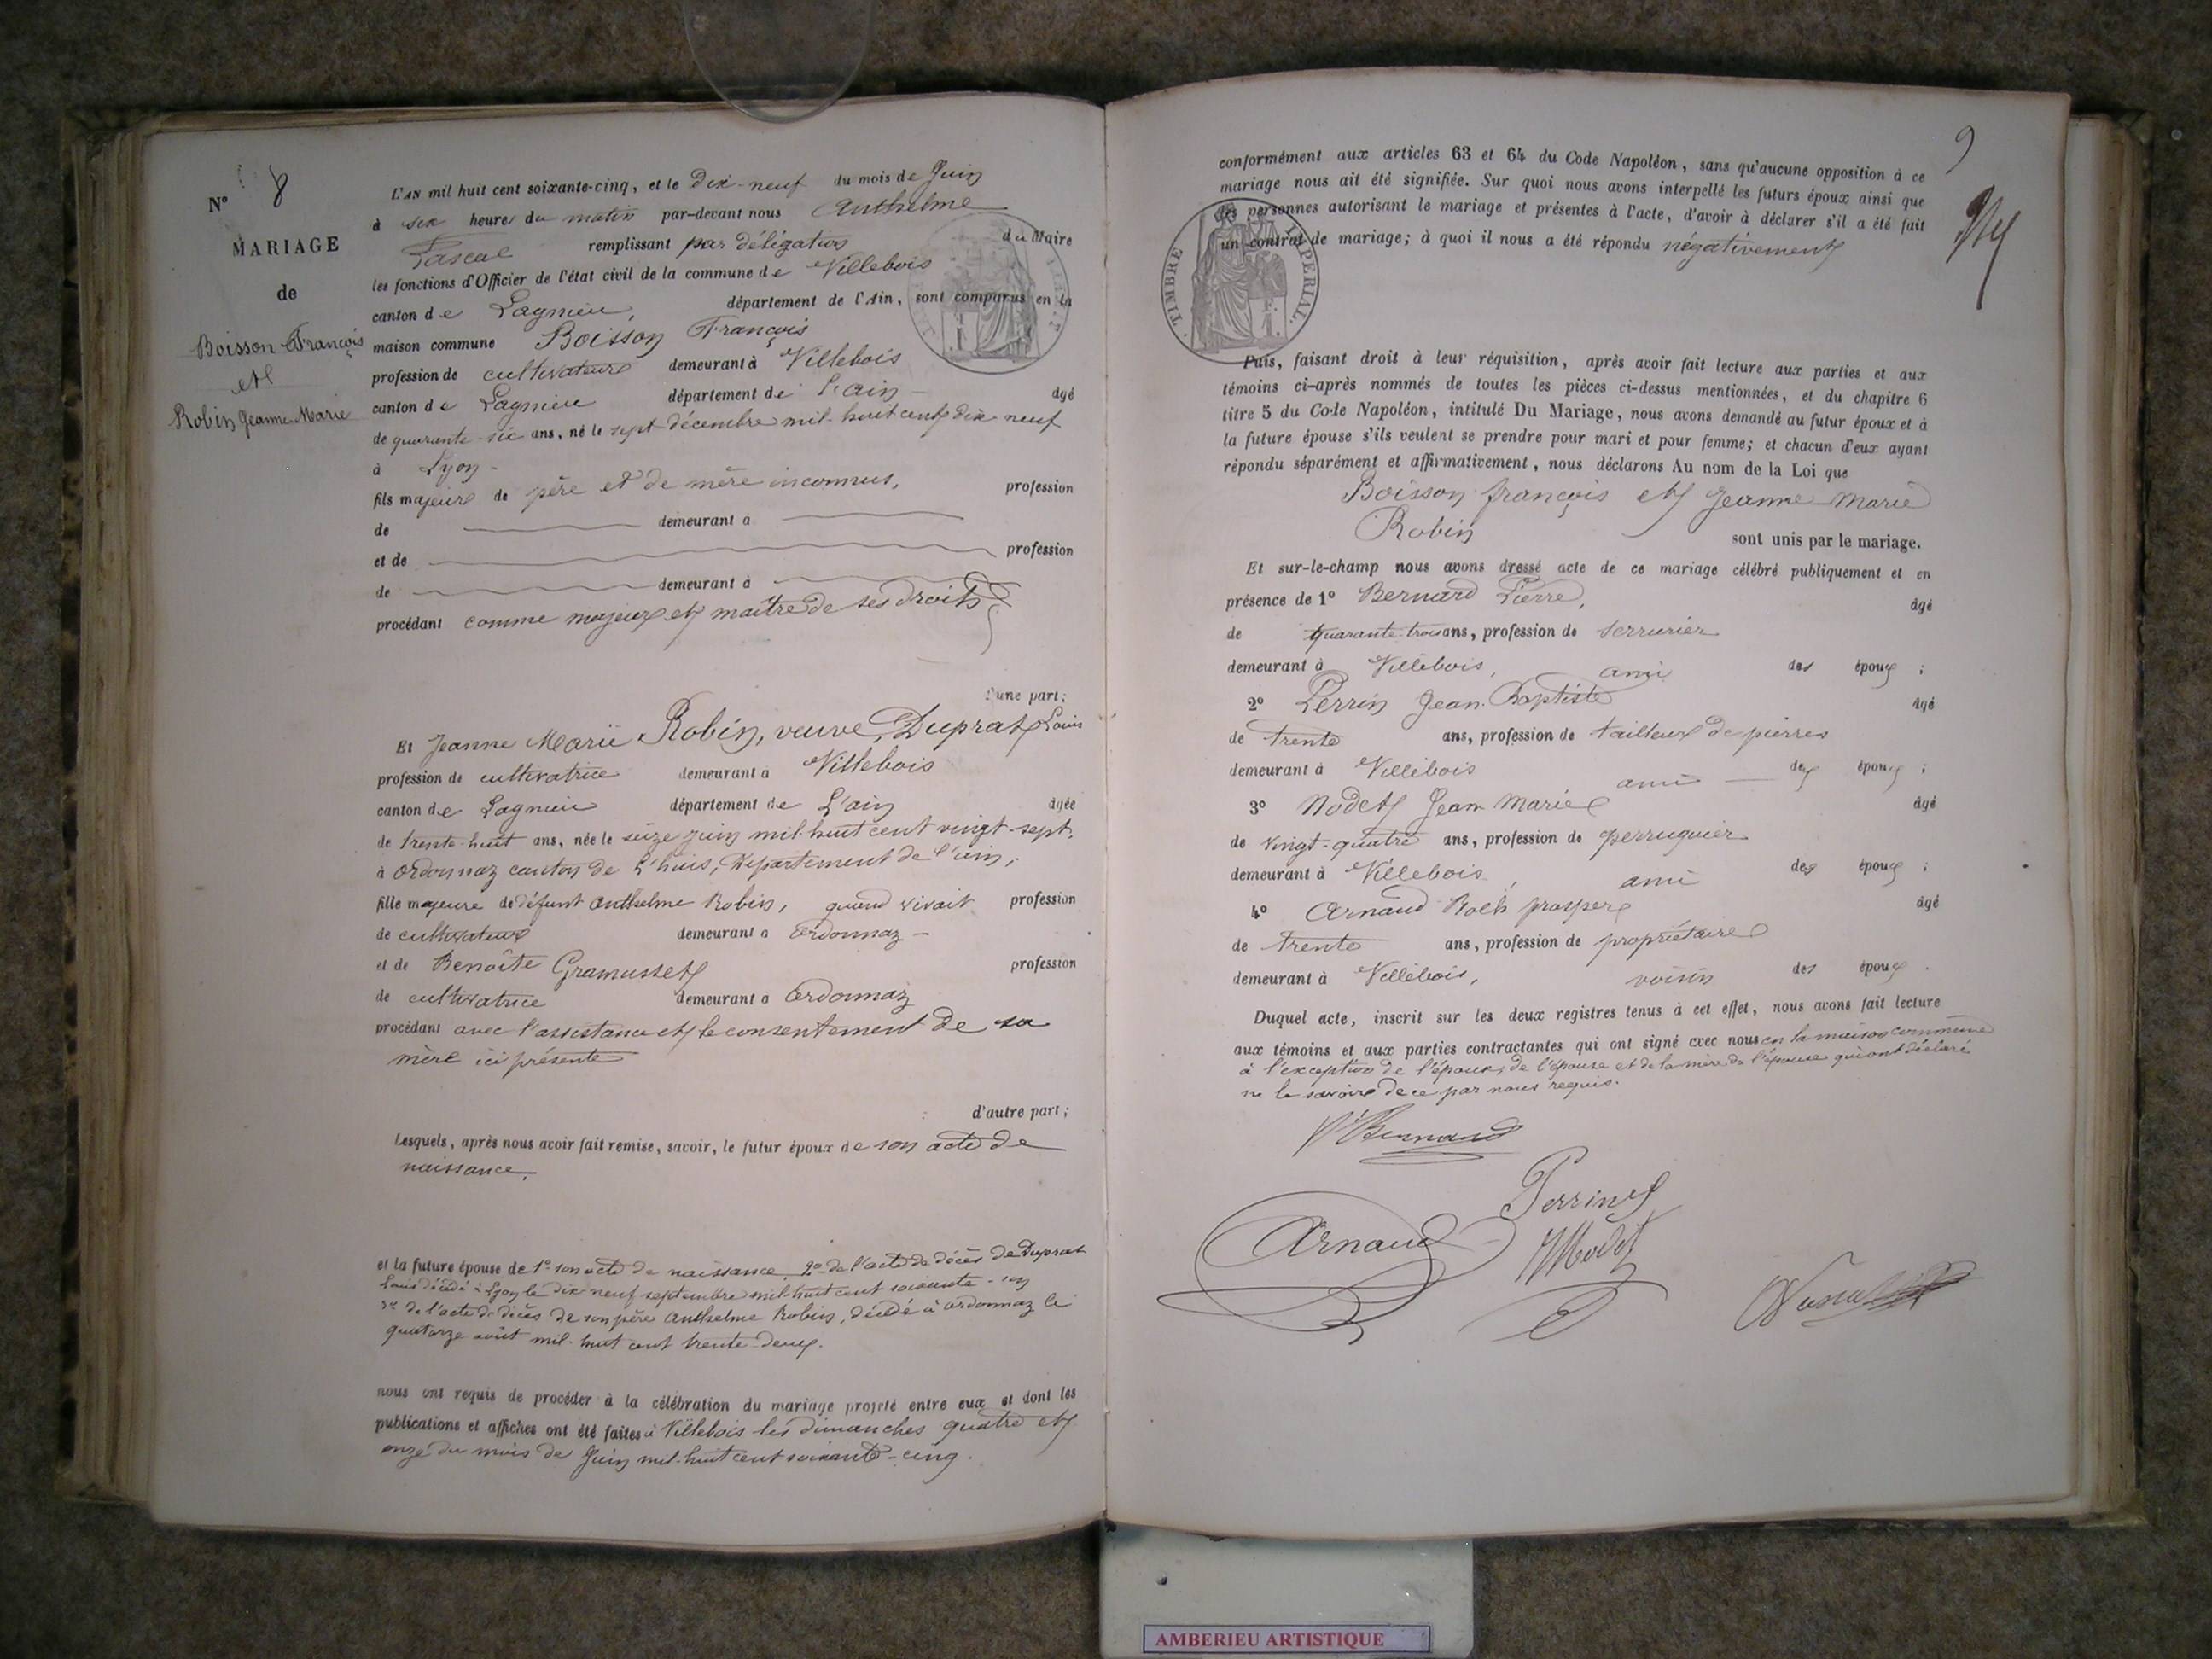 N° 8
MARIAGE
de
Boisson François
et
Robin Jeanne Marie
L'AN mil huit cent soixante-cinq, et le Dix-neuf du mois de Juin
à six heures du matin par-devant nous Anthelme
Pascal remplissant par délégation du Maire
les fonctions d'Officier de l'état civil de la commune de Villebois
canton de Lagnieu, département de l'Ain, sont comparus en la
maison commune Boisson François
profession de cultivateur demeurant à Villebois
canton de Lagnieu département de l'ain âgé
de quarante-six ans, né le sept décembre mil-huit cent dix neuf
à Lyon
fils majeur de père et de mère inconnus, profession
de demeurant à
et de profession
de demeurant à
procédant comme majeur et maître de ses droits
d'une part;
Et Jeanne Marie Robin, veuve, Duprat Louis
profession de cultivatrice demeurant à Villebois
canton de Lagnieu département de L'ain âgée
de trente-huit ans, née le seize juin mil-huit cent vingt-sept.
à ordonnaz canton de L'huis, Département de l'ain,
fille majeure de défunt Anthelme Robin, quand vivait profession
de cultivateur demeurant à ordonnaz
et de Benoîte Gramusset profession
de cultivatrice demeurant à ordonnaz
procédant avec l'assistance et le consentement de sa
mère ici présente
d'autre part;
Lesquels, après nous avoir fait remise, savoir, le futur époux de son acte de
naissance,
et la future épouse de 1° son acte de naissance, 2° de l'acte de décès de Duprat
Louis décédé à Lyon le dix neuf septembre mil-huit cent soixante-un
3° de l'acte de décès de son père Anthelme Robin, décédé à ordonnaz le
quatorze août mil-huit cent trente-deux.
nous ont requis de procéder à la célébration du mariage projeté entre eux et dont les
publications et affiches ont été faites à Villebois les dimanches quatre et
onze du mois de Juin mil-huit cent soixante-cinq.
9
conformément aux articles 63 et 64 du Code Napoléon, sans qu'aucune opposition à ce
mariage nous ait été signifiée. Sur quoi nous avons interpellé les futurs époux ainsi que
les personnes autorisant le mariage et présentes à l'acte, d'avoir à déclarer s'il a été fait
un contrat de mariage; à quoi il nous a été répondu négativement
TIMBRE IMPERIAL.
Puis, faisant droit à leur réquisition, après avoir fait lecture aux parties et aux
témoins ci-après nommés de toutes les pièces ci-dessus mentionnées, et du chapitre 6
titre 5 du Code Napoléon, intitulé Du Mariage, nous avons demandé au futur époux et à
la future épouse s'ils veulent se prendre pour mari et pour femme; et chacun d'eux ayant
répondu séparément et affirmativement, nous déclarons Au nom de la Loi que
Boisson françois et Jeanne Marie
Robin sont unis par le mariage.
Et sur-le-champ nous avons dressé acte de ce mariage célébré publiquement et en
présence de 1° Bernard Pierre, âgé
de quarante-trois ans, profession de serrurier
demeurant à Villebois, ami des époux;
2° Perrin Jean-Baptiste âgé
de trente ans, profession de tailleur de pierres
demeurant à Villebois ami des époux;
3° Nodet Jean Marie âgé
de vingt-quatre ans, profession de perruquier
demeurant à Villebois, ami des époux;
4° Arnaud Roch prosper âgé
de trente ans, profession de propriétaire
demeurant à Villebois, voisin des époux.
Duquel acte, inscrit sur les deux registres tenus à cet effet, nous avons fait lecture
aux témoins et aux parties contractantes qui ont signé avec nous en la maison commune
à l'exception de l'époux, de l'épouse et de la mère de l'épouse qui ont déclaré
ne le savoir de ce par nous requis.
Pre Bernard
Perrin
Arnaud
Nodet
Pascal
AMBERIEU ARTISTIQUE